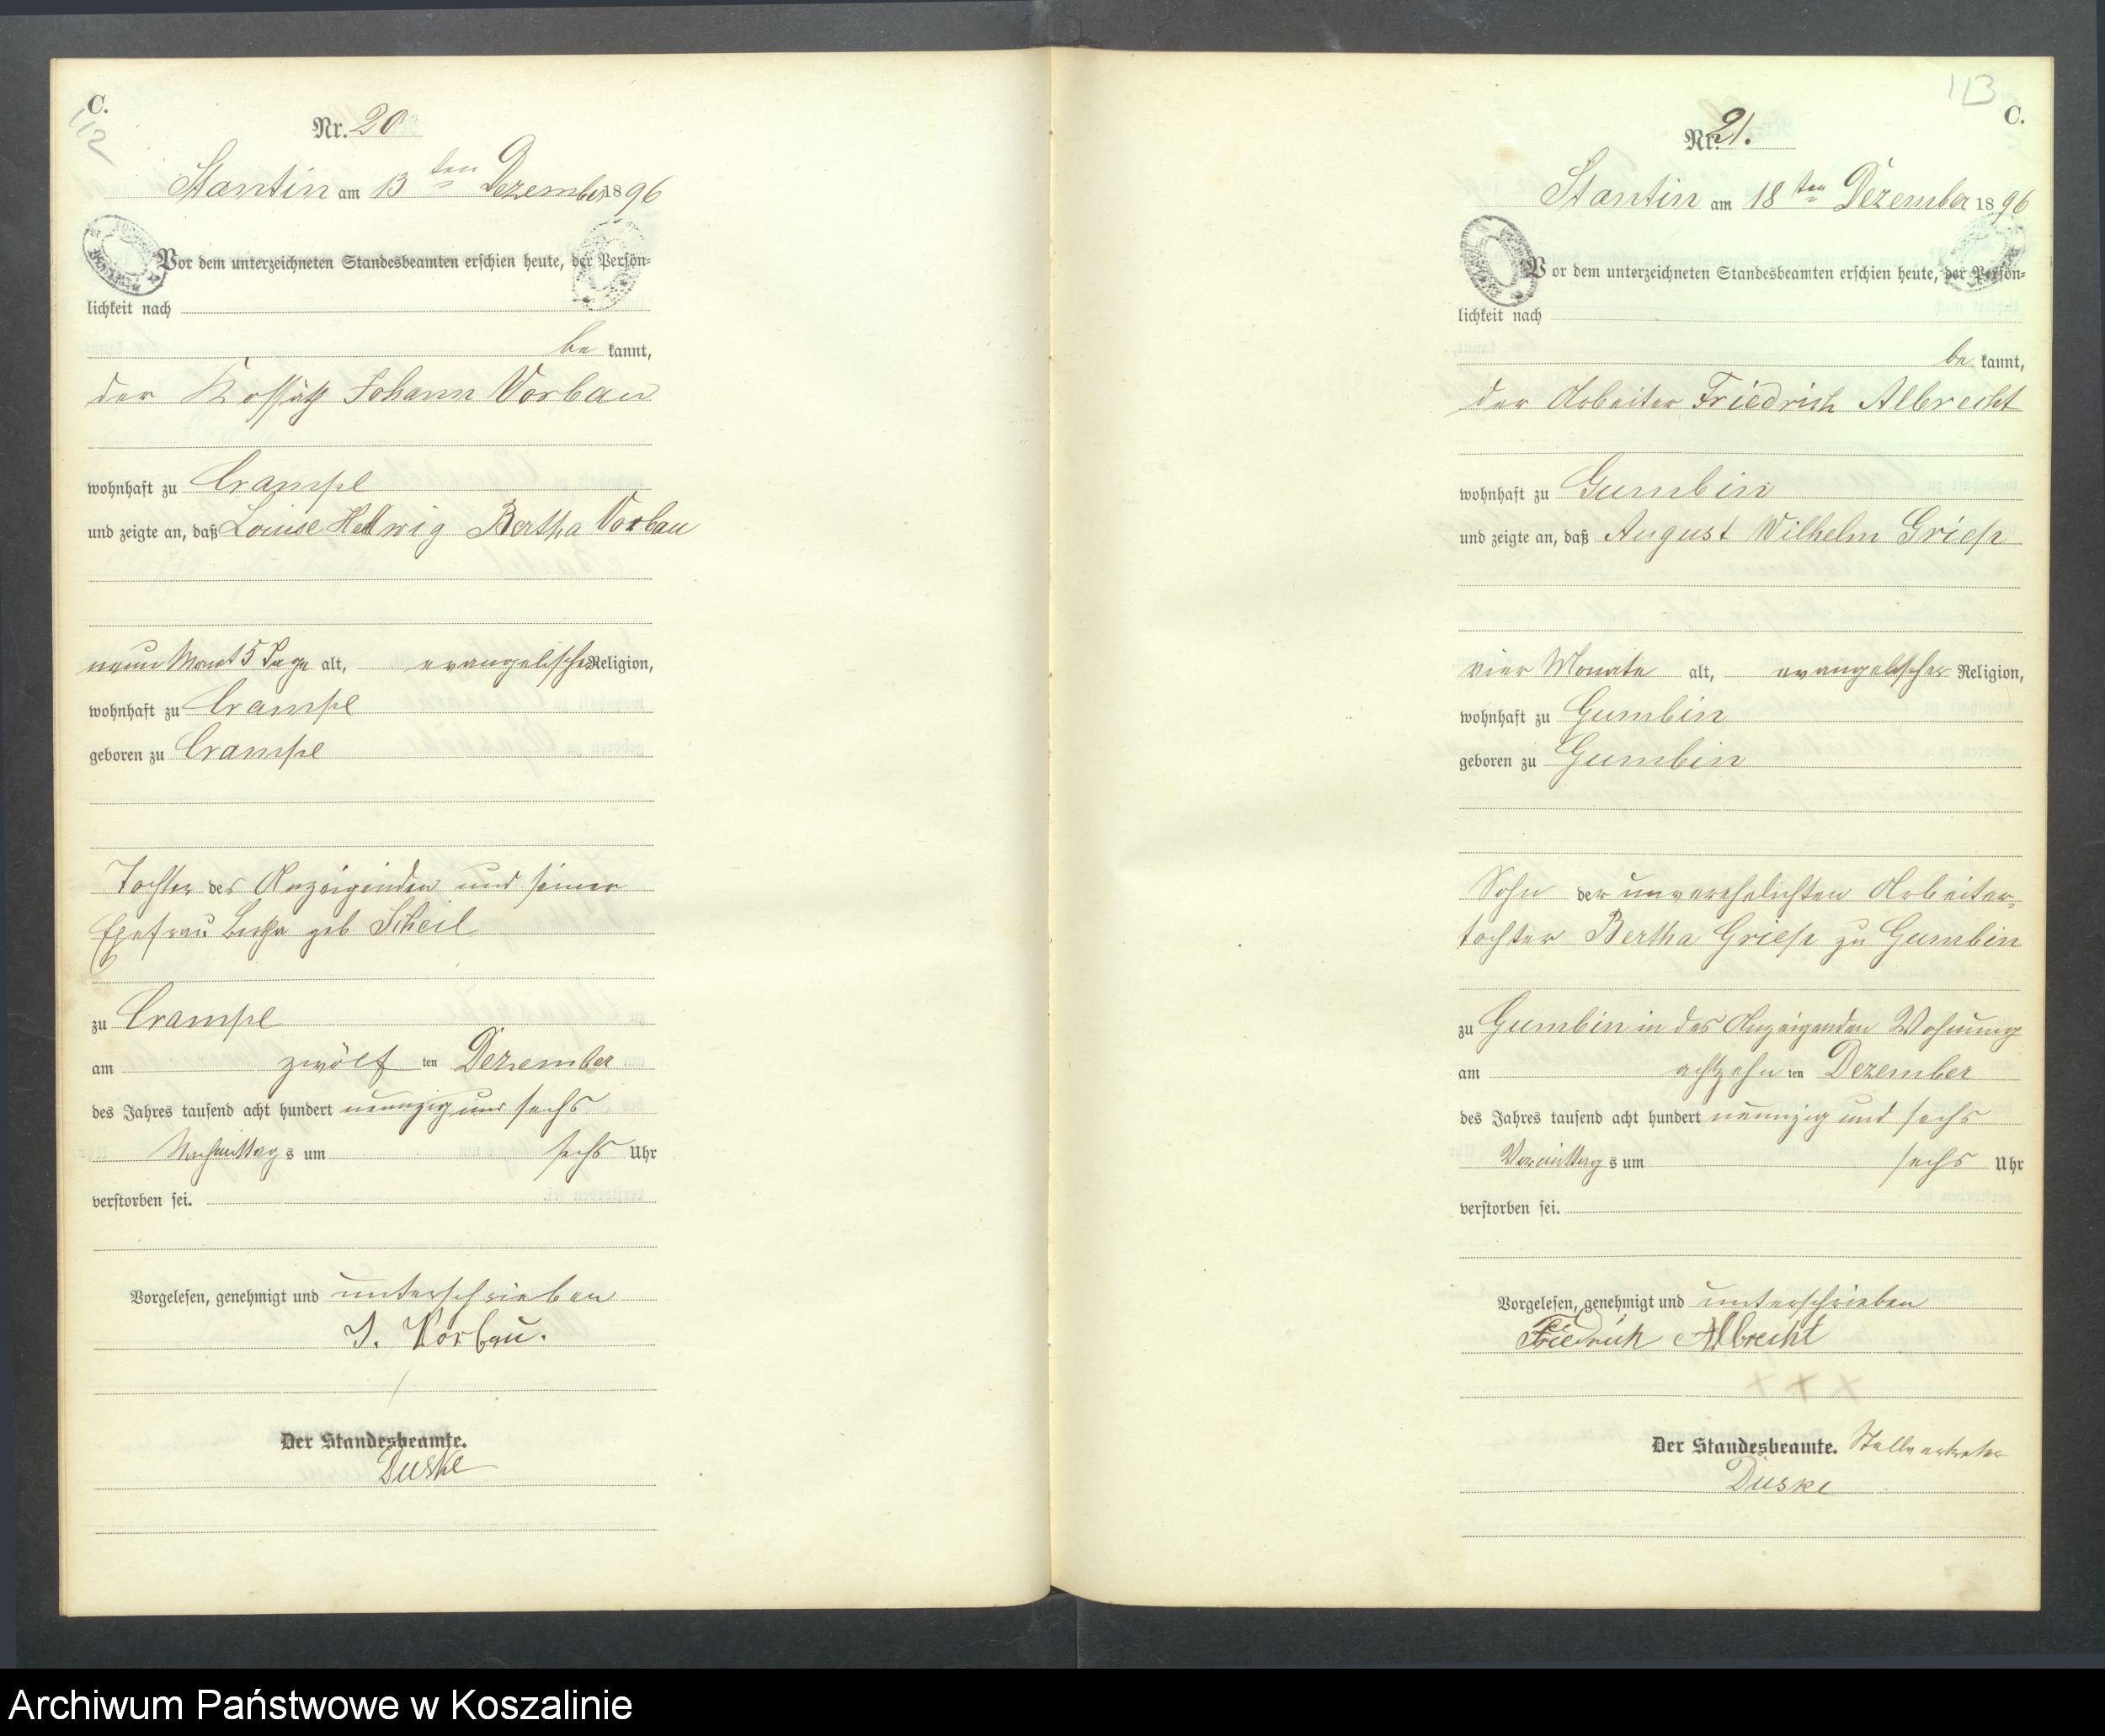 C.
112
Nr. 20
Stantin am 13ten Dezember 1896
Vor dem unterzeichneten Standesbeamten erschien heute, der Persön-
lichkeit nach
be kannt,
der Kossäth Johann Vorbau
wohnhaft zu Crampe
und zeigte an, daß Louise Hedwig Bertha Vorbau
neun Monat 5 Tage alt, evangelischer Religion,
wohnhaft zu Crampe
geboren zu Crampe
Tochter des Anzeigenden und seiner
Ehefrau Bertha geb. Scheil
zu Crampe
am zwölf ten Dezember
des Jahres tausend acht hundert neunzig und sechs
Nachmittag s um sechs Uhr
verstorben sei.
Vorgelesen, genehmigt und unterschrieben
J. Vorbau.
Der Standesbeamte.
Duske
113
C.
Nr. 21.
Stantin am 18ten Dezember 1896
Vor dem unterzeichneten Standesbeamten erschien heute, der Persön-
lichkeit nach
be kannt,
der Arbeiter Friedrich Albrecht
wohnhaft zu Gumbin
und zeigte an, daß August Wilhelm Griep
vier Monate alt, evangelischer Religion,
wohnhaft zu Gumbin
geboren zu Gumbin
Sohn der unverehelichten Arbeiter-
tochter Bertha Griep zu Gumbin
zu Gumbin in des Anzeigenden Wohnung
am achtzehn ten Dezember
des Jahres tausend acht hundert neunzig und sechs
Vormittag s um sechs Uhr
verstorben sei.
Vorgelesen, genehmigt und unterschrieben
Friedrich Albrecht
+ + +
Der Standesbeamte. Stellvertreter
Duske
Archiwum Państwowe w Koszalinie